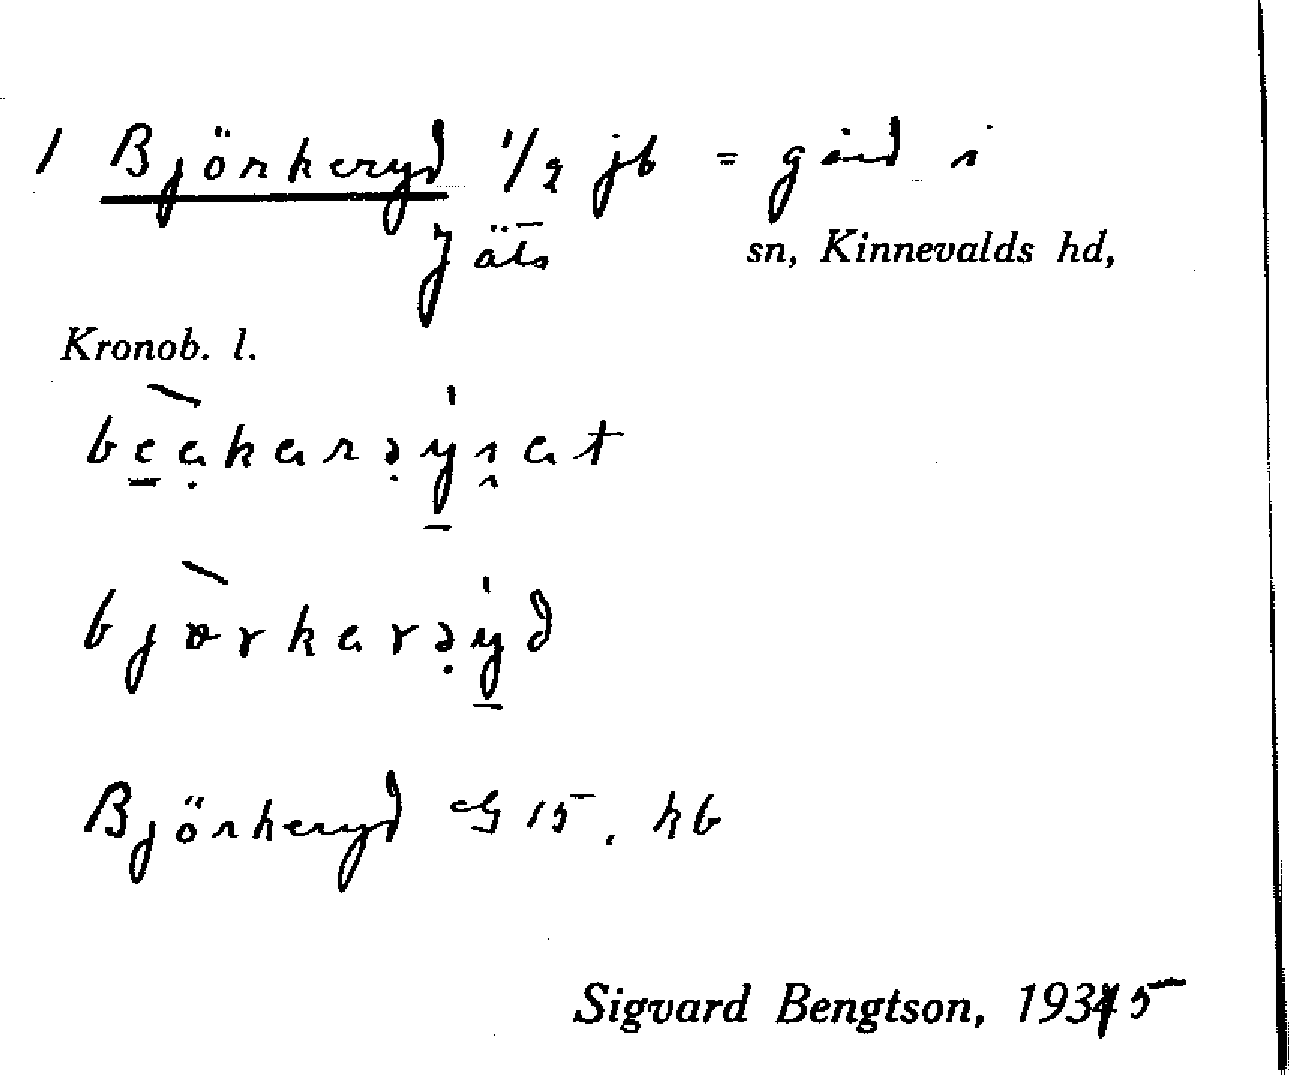 1 Björkeryd 1/2 jb = gård i
Jäts sn, Kinnevalds hd,
Kronob. l.
bjorkarəyd
Björkeryd G 15. kb
Sigvard Bengtson, 1935